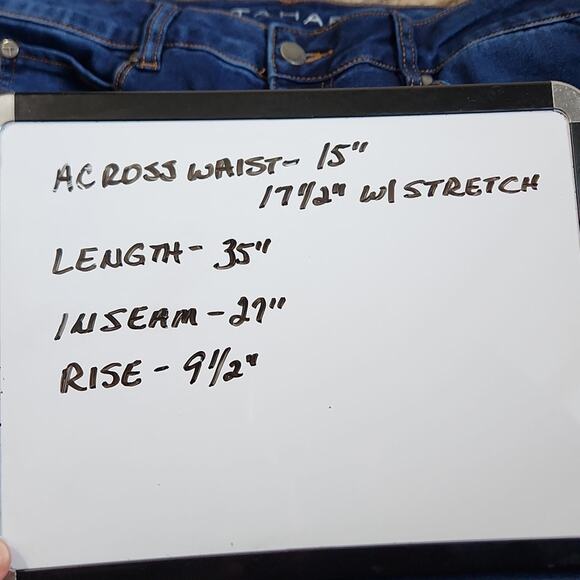 TAHAR
ACROSS WAIST- 15"
17 1/2" W/ STRETCH
LENGTH - 35"
INSEAM - 27"
RISE - 9 1/2"